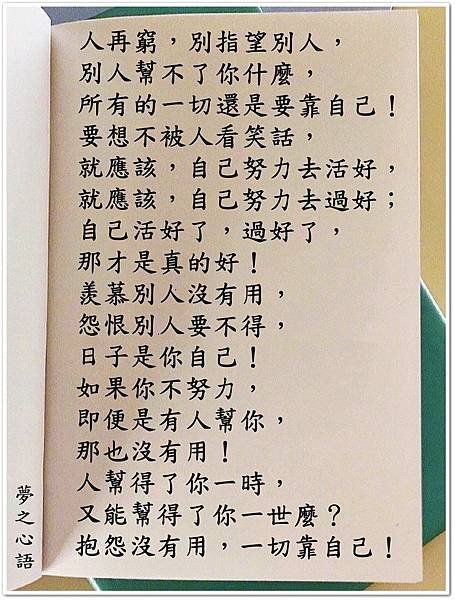 人再窮，別指望別人，
別人幫不了你什麼，
所有的一切還是要靠自己！
要想不被人看笑話，
就應該，自己努力去活好，
就應該，自己努力去過好；
自己活好了，過好了，
那才是真的好！
羨慕別人沒有用，
怨恨別人要不得，
日子是你自己！
如果你不努力，
即便是有人幫你，
那也沒有用！
人幫得了你一時，
又能幫得了你一世麼？
抱怨沒有用，一切靠自己！
夢之心語